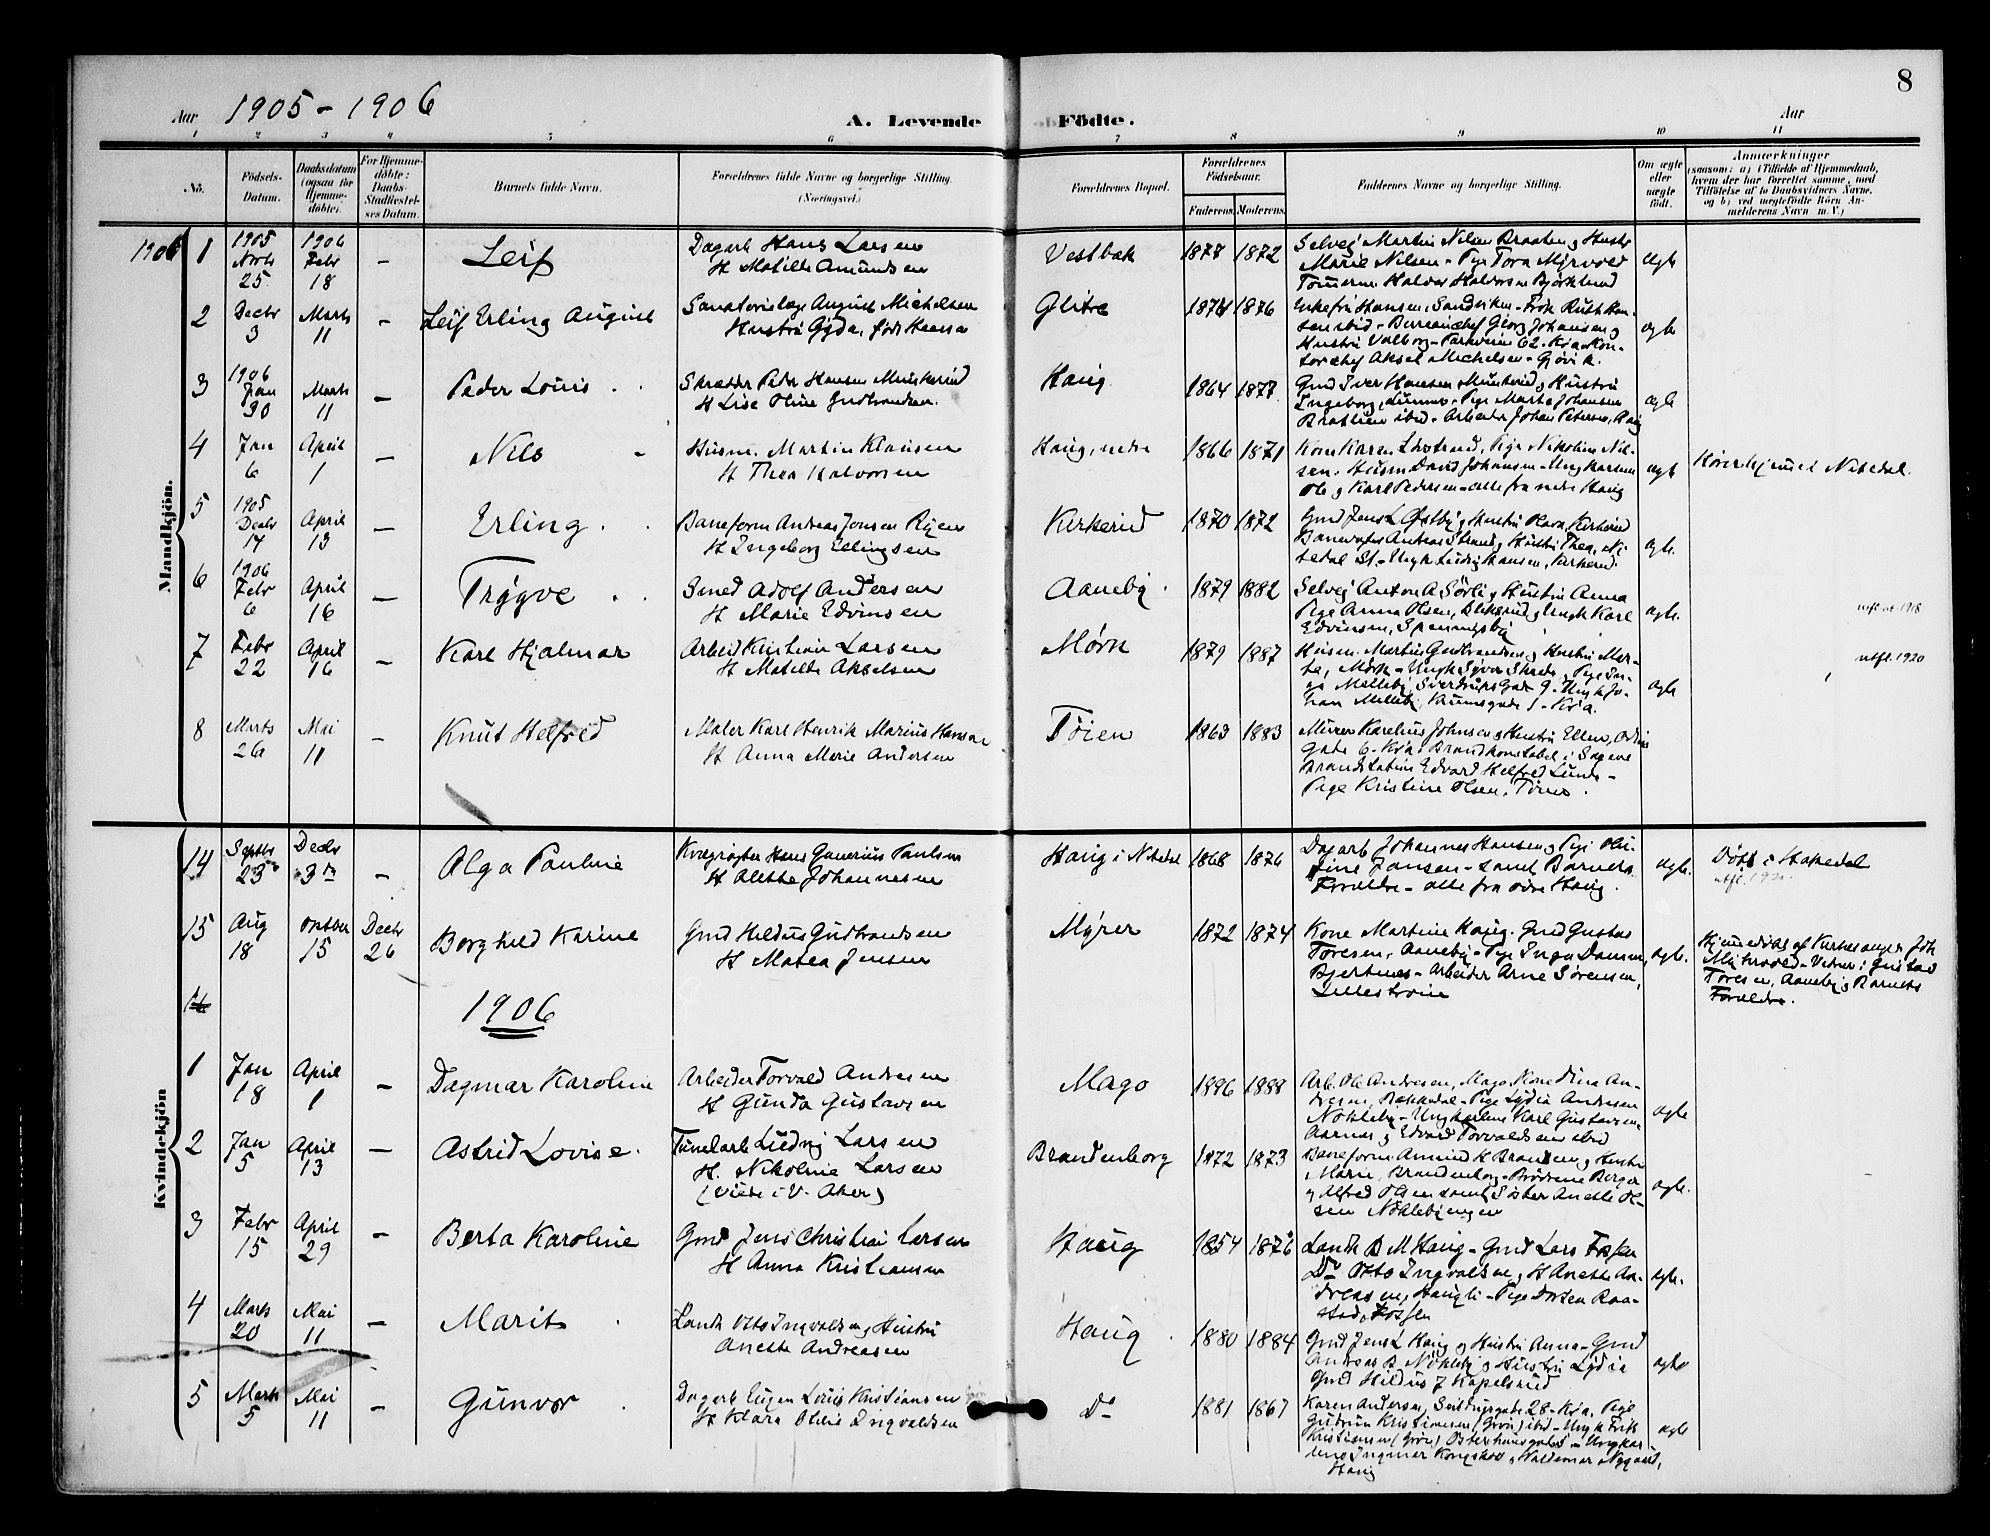 8
Aar 1905-1906 A. Levende Födte. Aar
1 2 3 4 5 6 7 8 9 10 11
No. Födsels-Datum. Daabsdatum (ogsaa för Hjemme-döbte). For Hjemme-döbte: Daabs-Stadfæstel-ses Datum. Barnets fulde Navn. Forældrenes fulde Navne og borgerlige Stilling. (Næringsvei.) Forældrenes Bopæl. Forældrenes Födselsaar. Faderens. Moderens. Faddernes Navne og borgerlige Stilling. Om ægte eller uægte födt. Anmærkninger (saasom: a) i Tilfælde af Hjemmedaab, hvem der har forrettet samme, med Tilföielse af to Daabsvidners Navne, og b) ved uægtefödte Börn An-melderens Navn m. V.)
Mandkjön.
1906 1 1905 Novb 25 1906 Febr 18 – Leif
Dagarb Hans Larsen
H Matilde Amundsen
Vestbæk 1877 1872
Selvej Martin Nilsen Braaten og Hustr
Marie Nilsen - Pige Tora Myrvold
Tømmerm Halvor Halvorsen Bjørklund
ægte
2 Decbr 3 Marts 11 – Leif Erling August
Sanatorielæge August Michelsen
Hustru Gyda, født Hansen
Glitre 1874 1876
Enkefru Hansen, Sandviken - Frøk Ruth Han-
sen ibid - Bureauchef Georg Johansen og
Hustru Valborg - Parkveien 62 - Kra - Kon-
torchef Aksel Michelsen - Gjøvik.
ægte
3 1906 Jan 30 Marts 11 – Peder Louis
Skrædder Peder Hansen Munkerud
H Lise Oline Gudbrandsen
Haug 1864 1877
Gmd Iver Hansen Munkerud og Hustru
Ingeborg, - Pige Marte Johansen
Braatlien ibid - Arbeider Johan Petersen, Haug
ægte
4 Jan 6 April 1 – Nils
Husm. Martin Klausen
H Thea Halvorsen
Haug, nedre 1866 1871
Kone Karen Livstrand, Pige Nikoline Nil-
sen. Husm David Johansen - Ungkarlene
Ole og Karl Pedersen - alle fra nedre Haug
ægte
Nitedal.
5 1905 Decbr 14 April 13 – Erling
Baneform Andreas Jonsen Ryen
H Ingeborg Ellingsen
Kirkerud 1870 1872
Gmd Jens L Østby og Hustru Kirkerud
Banevogter Andreas Strand og Hustru Thea, Ni-
tedal St. - Ungk Ludvig Hansen, Kirkerud
ægte.
6 1906 Febr 6 April 16 – Trygve
Smed Adolf Andersen
H Marie Edvinsen
Aaneby 1879 1882
Selvej Anton A Sørli og Hustru Anna
Pige Anna Olsen, og Ungk Karl
Edvinsen, Spenningsby
ægte.
utfl. 1918
7 Febr 22 April 16 – Karl Hjalmar
Arbeid Kristian Larsen
H Matilde Akselsen
Mørk 1879 1887
Husm. Martin Gudbrandsen og Hustru Mar-
te, Mørk - Ungk Syver - Pige In-
ga Melleby, Sverdrupsgade 9 - Ungk Jo-
han Melleby, - Kra.
ægte
utfl. 1920
8 Marts 26 Mai 11 – Knut Helfred
Maler Karl Henrik Marius Hansen
H Anna Marie Andersen
Tøien 1863 1883
Murer Karelius Johnsen og Hustru Ellen, Odins
gate 6. Kra. Brandkonstabel i Sagene
Brandstation Edvard Helfred Lund -
Pige Kristine Olsen, Tøien.
Kvindekjön
14 Septbr 23 Decbr 3die – Olga Pauline
Kvægrøgter Hans Gunerius Paulsen
H Alette Johannesen
Haug i Nitedal 1868 1876
Dagarb Johannes Hansen og Pige Oli-
vine Jansen - samt Barnets
Forældre - alle fra øvre Haug.
ægte.
Døbt i Hakedal
utfl.
15 Aug 18 Oktober 15 Decbr 26 Borghild Karine
Gmd Hildus Gudbrandsen
H Matea Jensen
Myrer 1872 1874
Kone Martine Haug. Gmd Gustav
Toresen, Aaneby - Pige Inga Dansen,
Bjertnes - Arbeider Arne Sørensen,
Lillestrøm
ægte.
Hjemmedøbt af Kirkesanger Joh
- Vidner: Gustav
Toresen, Aaneby og Barnets
Forældre.
16
1906
1 Jan 18 April 1 – Dagmar Karoline
Arbeider Torvald Andresen
H Gunda Gustavsen
Mago 1886 1888
Arb. Ole Andresen, Mago. Kone Dina An-
dresen, - Pige Lydia Andresen
Nøkleby - Ungkarlene Karl Gustavsen
Aarnes og Edvard Torvaldsen ibid
ægte
2 Jan 5 April 13 – Astrid Lovise.
Tunelarb Ludvig Larsen
H. Nikoline Larsen
(viede i V. Aker)
Brandenborg 1872 1873
Baneform Amund H Brandsen og Hustru
Marie, Brandenborg - Brødrene Berger
og Alfred Olsen samt Søster Anette Ol-
sen Nøklebyengen
ægte.
3 Febr 15 April 29 – Berta Karoline
Gmd Jens Christian Larsen
H Anna Kristiansen
Haug 1854 1876
Landh B M Haug - Gmd Lars Fossen
Do Otto Ingvaldsen og H Anette An-
dreasen, Haugli - Pige Raa-
stad, Fossen
ægte.
4 Marts 20 Mai 11 – Marit
Landh Otto Ingvaldsen og Hustru
Anette Andreasen
Haug 1880 1884
Gmd Jens L Haug og Hustru Anna - Gmd
Andreas B Nøkleby og Hustru Lydia
Gmd Hildus J Kapelsrud
ægte
5 Marts 5 Mai 11 – Gunvor
Dagarb Eugen Louis Kristiansen
H Klara Oline Ingvaldsen
Do 1881 1867
Karen Andersen, 28 - Kra, Pige
Gudrun Kristiansen (Grøn) ibid - Ungk Erik
Kristiansen (Grøn) Østerhausgade - Ungkar-
lene Ingmar Kongskov og Valdemar Nygaard,
Haug
ægte